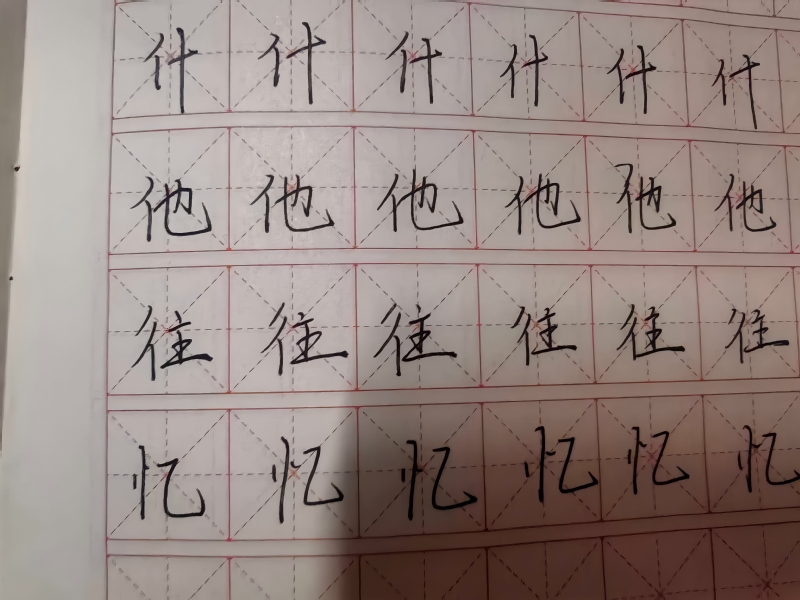 什什什什什什
他他他他他他
往往往往往往
忆忆忆忆忆忆